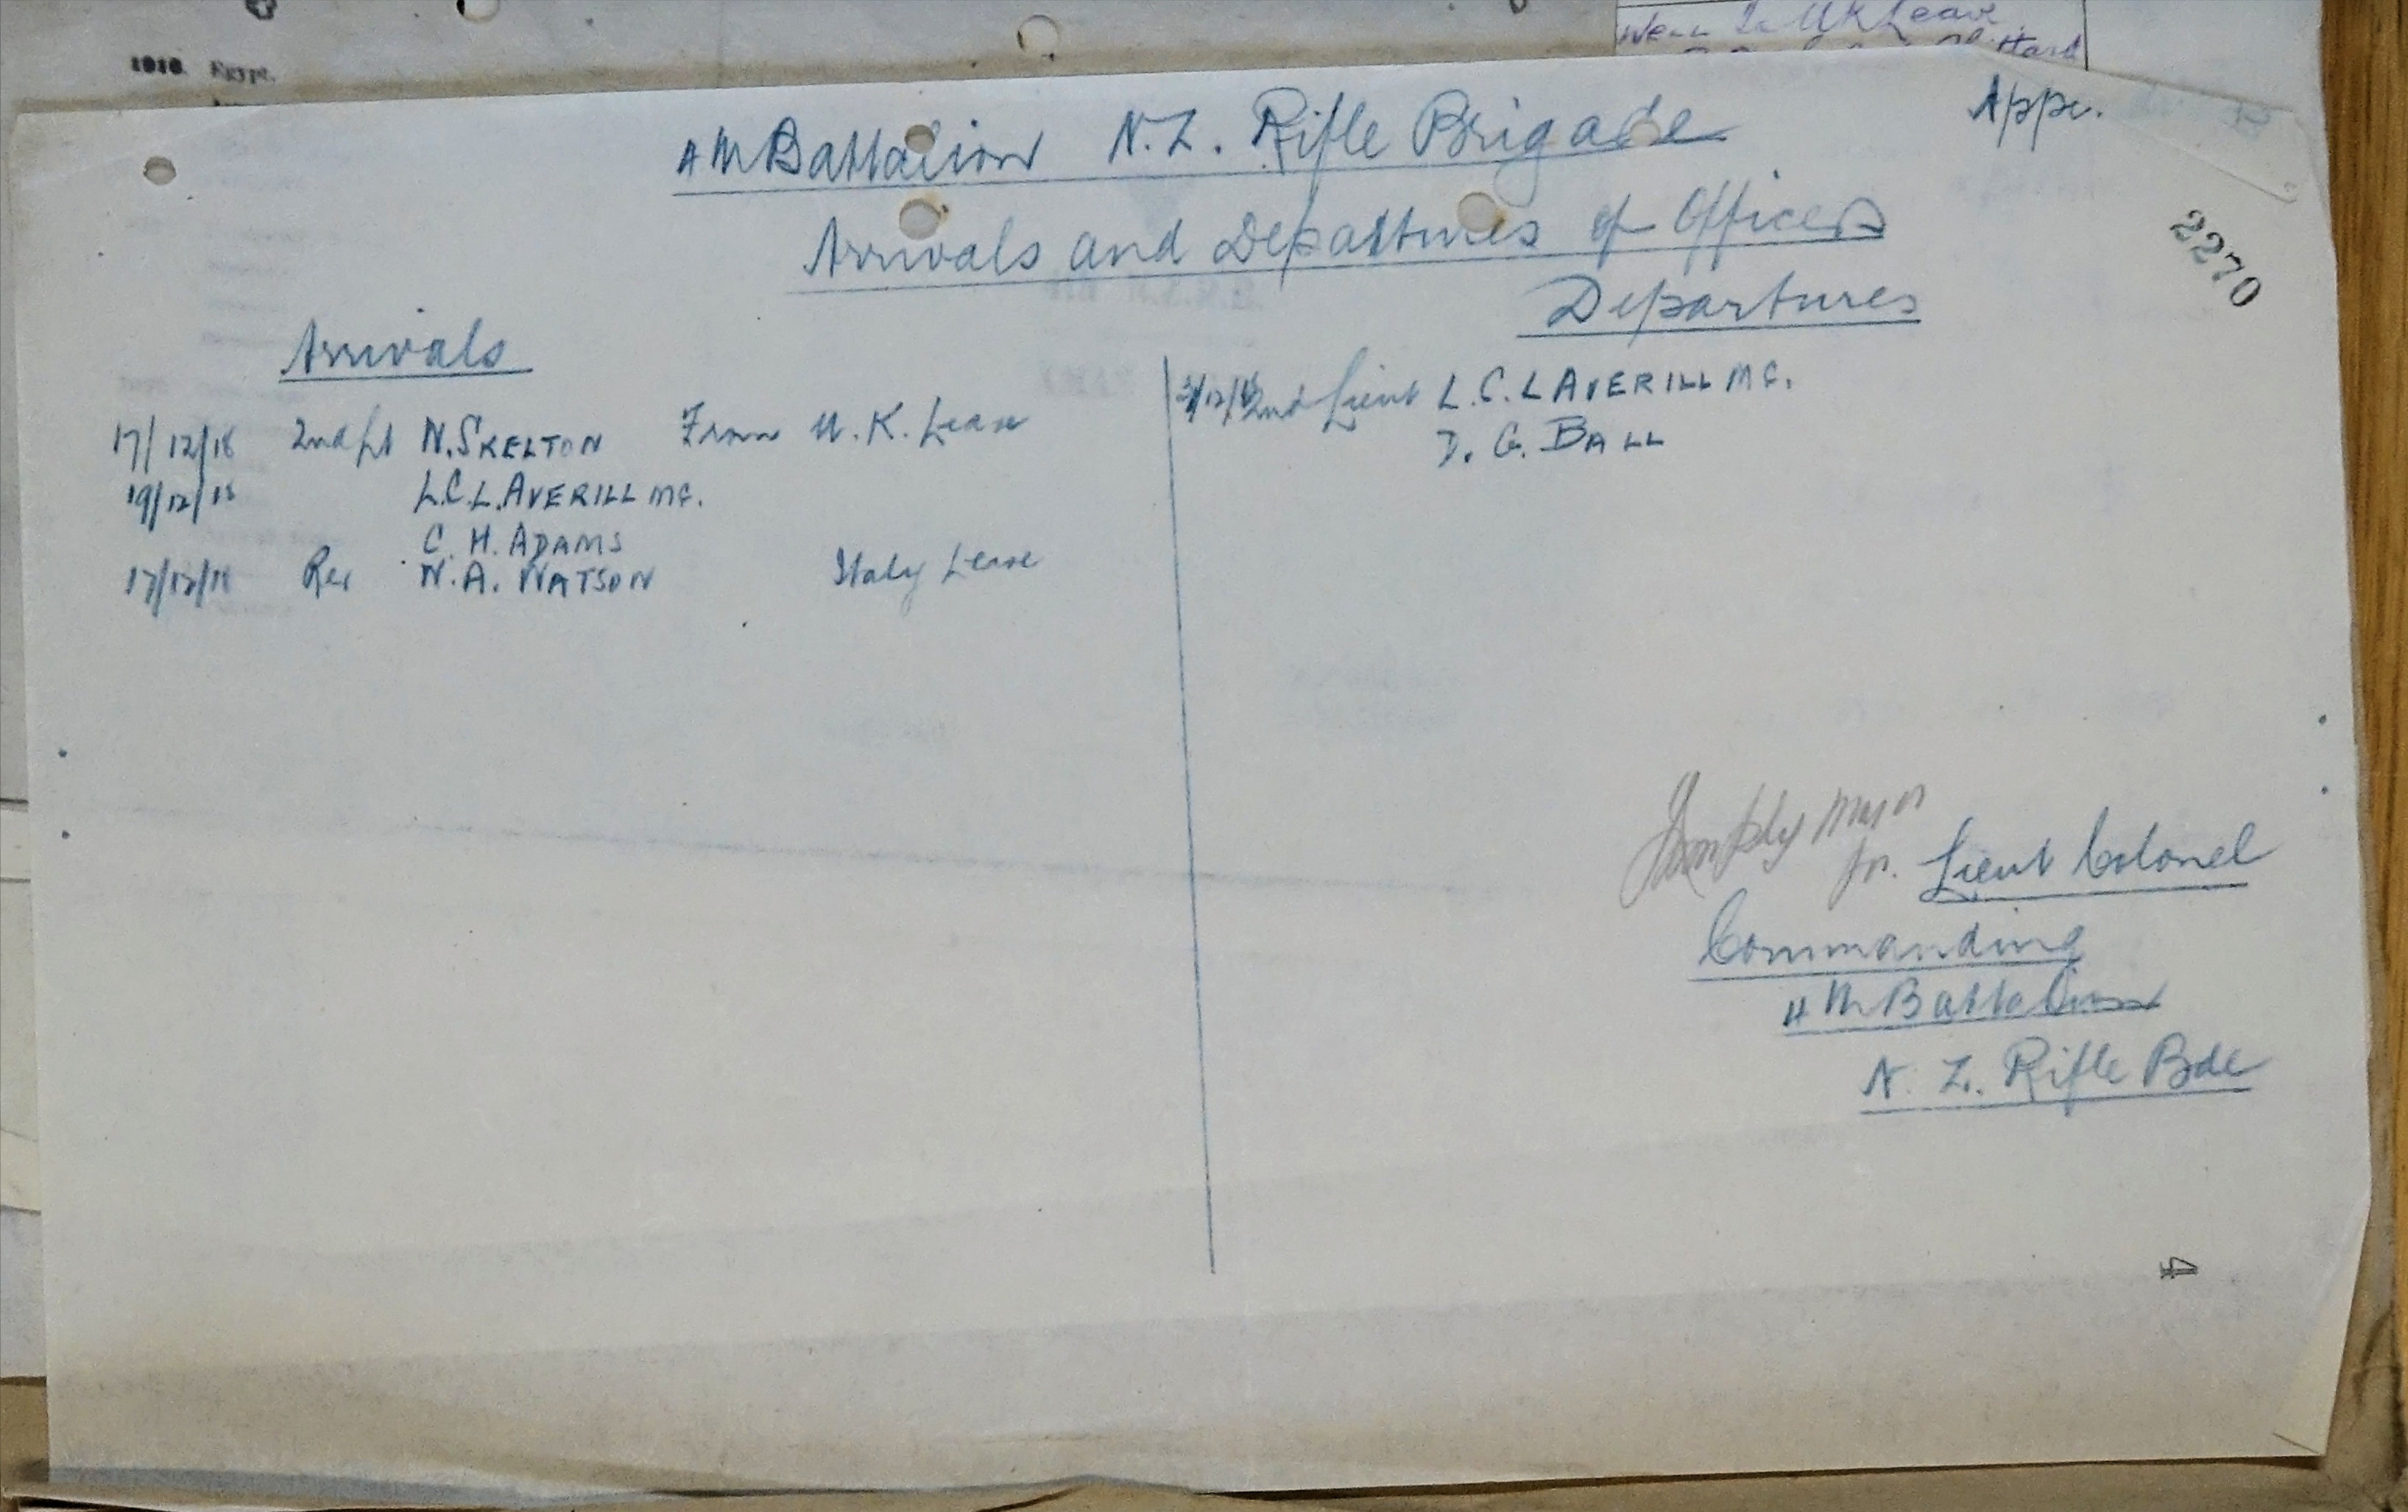 1918. Egypt.
Went to UK Leave
4th Battalion N.Z. Rifle Brigade
Appx.
Arrivals and Departures of Officers
2270
Departures
Arrivals
17/12/18 2nd Lt N. SKELTON From U.K. Leave
19/12/18 L.C.L. AVERILL MC.
C. H. ADAMS
17/12/18 Rev N. A. WATSON Italy Leave
2nd Lieut L.C.L AVERILL MC.
D. G. BALL
Major
for. Lieut Colonel
Commanding
4th Battalion
N. Z. Rifle Bde
4